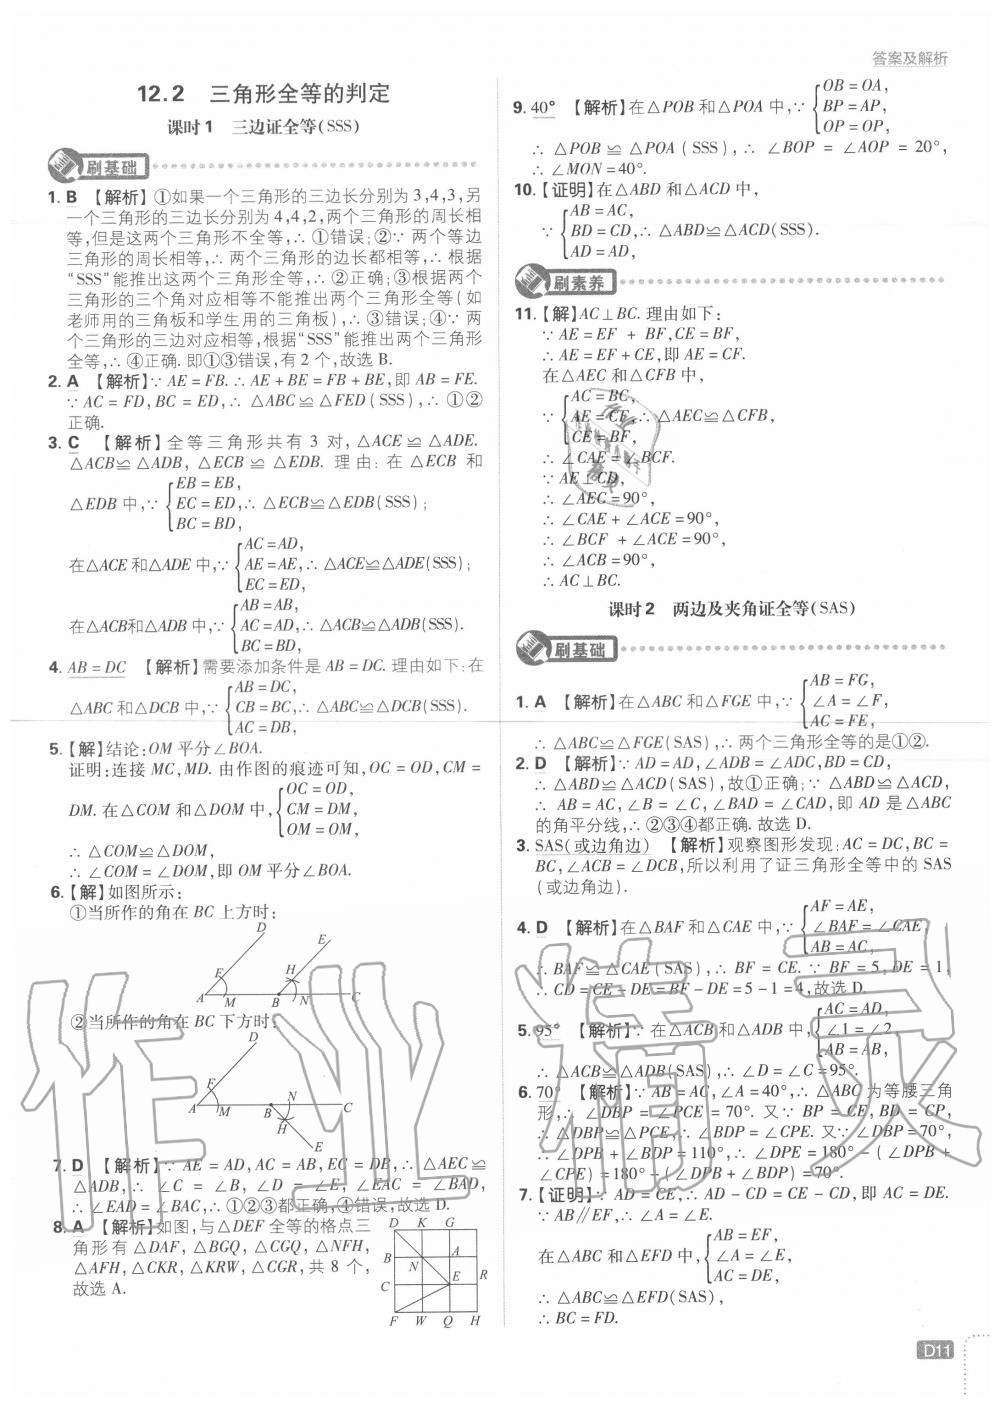 答案及解析
12.2 三角形全等的判定
课时1 三边证全等(SSS)
刷基础
1. B 【解析】①如果一个三角形的三边长分别为3,4,3,另
一个三角形的三边长分别为4,4,2,两个三角形的周长相
等,但是这两个三角形不全等,∴ ①错误;②∵ 两个等边
三角形的周长相等,∴ 两个三角形的边长都相等,∴ 根据
“SSS”能推出这两个三角形全等,∴ ②正确;③根据两个
三角形的三个角对应相等不能推出两个三角形全等(如
老师用的三角板和学生用的三角板),∴ ③错误;④∵ 两
个三角形的三边对应相等,根据“SSS”能推出两个三角形
全等,∴ ④正确. 即①③错误,有2个,故选B.
2. A 【解析】∵ AE=FB. ∴ AE+BE=FB+BE,即AB=FE.
∵ AC=FD,BC=ED,∴ △ABC≌△FED(SSS),∴ ①②
正确.
3. C 【解析】全等三角形共有3对,△ACE≌△ADE.
△ACB≌△ADB,△ECB≌△EDB. 理由:在△ECB和
EB=EB,
△EDB中,∵ EC=ED,∴ △ECB≌△EDB(SSS);
BC=BD,
AC=AD,
在△ACE和△ADE中,∵ AE=AE,∴ △ACE≌△ADE(SSS);
EC=ED,
AB=AB,
在△ACB和△ADB中,∵ AC=AD,∴ △ACB≌△ADB(SSS).
BC=BD,
4. AB=DC 【解析】需要添加条件是AB=DC. 理由如下:在
AB=DC,
△ABC和△DCB中,∵ CB=BC,∴ △ABC≌△DCB(SSS).
AC=DB,
5. 【解】结论:OM平分∠BOA.
证明:连接MC,MD. 由作图的痕迹可知,OC=OD,CM=
OC=OD,
DM. 在△COM和△DOM中, CM=DM,
OM=OM,
∴ △COM≌△DOM,
∴ ∠COM=∠DOM,即OM平分∠BOA.
6. 【解】如图所示:
①当所作的角在BC上方时:
D
E
F
H
A M B N C
②当所作的角在BC下方时:
D
F
N
A M B C
H
E
7. D 【解析】∵ AE=AD,AC=AB,EC=DB,∴ △AEC≌
△ADB,∴ ∠C=∠B,∠D=∠E,∠EAC=∠BAD,
∴ ∠EAD=∠BAC,∴ ①②③都正确,④错误,故选D.
8. A 【解析】如图,与△DEF全等的格点三
角形有△DAF,△BGQ,△CGQ,△NFH,
△AFH,△CKR,△KRW,△CGR,共8个,
故选A.
D K G
B A
N
E R
C
F W Q H
9. 40° 【解析】在△POB和△POA中,∵
OB=OA,
BP=AP,
OP=OP,
∴ △POB≌△POA(SSS),∴ ∠BOP=∠AOP=20°,
∴ ∠MON=40°.
10. 【证明】在△ABD和△ACD中,
AB=AC,
∵ BD=CD,∴ △ABD≌△ACD(SSS).
AD=AD,
刷素养
11. 【解】AC⊥BC. 理由如下:
∵ AE=EF+BF,CE=BF,
∴ AE=EF+CE,即AE=CF.
在△AEC和△CFB中,
AC=BC,
∵ AE=CF,∴ △AEC≌△CFB,
CE=BF,
∴ ∠CAE=∠BCF.
∵ AE⊥CD,
∴ ∠AEC=90°,
∴ ∠CAE+∠ACE=90°,
∴ ∠BCF+∠ACE=90°,
∴ ∠ACB=90°,
∴ AC⊥BC.
课时2 两边及夹角证全等(SAS)
刷基础
1. A 【解析】在△ABC和△FGE中,∵
AB=FG,
∠A=∠F,
AC=FE,
∴ △ABC≌△FGE(SAS),∴ 两个三角形全等的是①②.
2. D 【解析】∵ AD=AD,∠ADB=∠ADC,BD=CD,
∴ △ABD≌△ACD(SAS),故①正确;∵ △ABD≌△ACD,
∴ AB=AC,∠B=∠C,∠BAD=∠CAD,即AD是△ABC
的角平分线,∴ ②③④都正确. 故选D.
3. SAS(或边角边) 【解析】观察图形发现:AC=DC,BC=
BC,∠ACB=∠DCB,所以利用了证三角形全等中的SAS
(或边角边).
4. D 【解析】在△BAF和△CAE中,∵
AF=AE,
∠BAF=∠CAE,
AB=AC,
∴ BAF≌△CAE(SAS),∴ BF=CE. ∵ BF=5,DE=1,
∴ CD=CE-DE=BF-DE=5-1=4,故选D.
5. 95° 【解析】∵ 在△ACB和△ADB中,
AC=AD,
∠1=∠2,
AB=AB,
∴ △ACB≌△ADB(SAS),∴ ∠D=∠C=95°.
6. 70° 【解析】∵ AB=AC,∠A=40°,∴ △ABC为等腰三角
形,∴ ∠DBP=∠PCE=70°. 又∵ BP=CE,BD=CP,
∴ △DBP≌△PCE,∴ ∠BDP=∠CPE. 又∵∠DBP=70°,
∴ ∠DPB+∠BDP=110°,∴ ∠DPE=180°-(∠DPB+
∠CPE)=180°-(∠DPB+∠BDP)=70°.
7. 【证明】∵ AD=CE,∴ AD-CD=CE-CD,即AC=DE.
∵ AB∥EF,∴ ∠A=∠E.
AB=EF,
在△ABC和△EFD中, ∠A=∠E,
AC=DE,
∴ △ABC≌△EFD(SAS),
∴ BC=FD.
作业精灵
D11